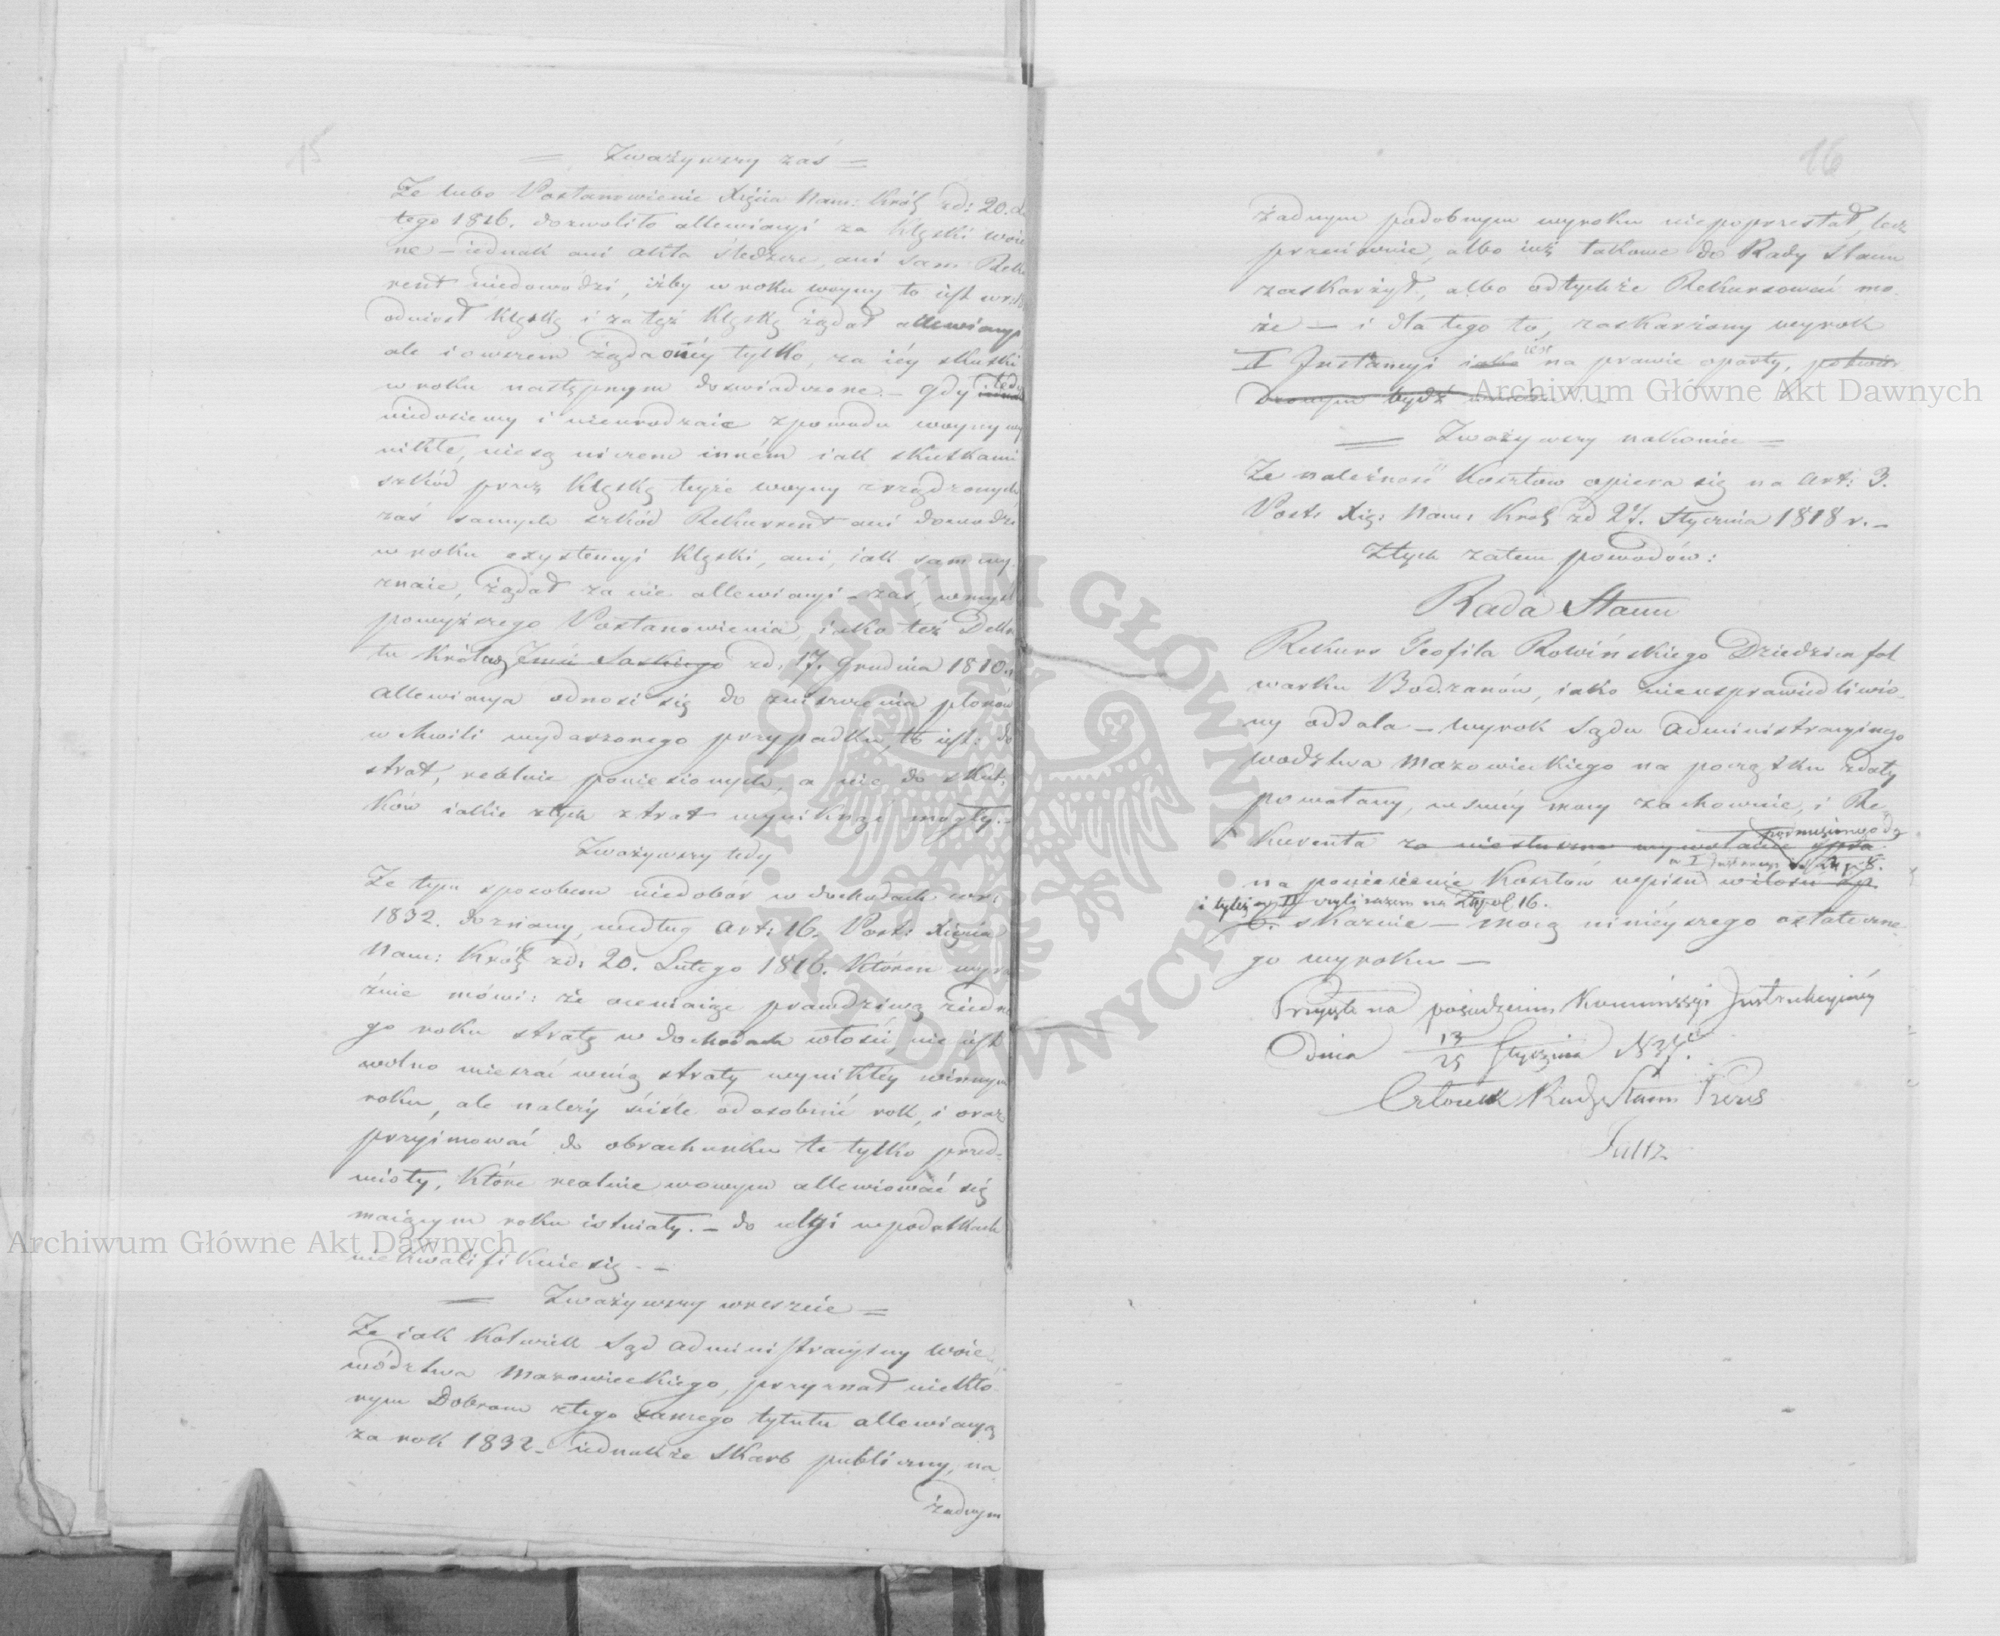 15
= Zważywszy zaś =
Że lubo Postanowienie Xięcia Nam: Król: zd: 20. Lu
tego 1816. dozwoliło allewiacyi za klęski woien
ne – iednak ani akta śledcze, ani sam Reku
rent niedowodzi, iżby w roku woyny to iest
odniosł klęskę i za też klęskę żądał allewiacyi
ale iowszem żąda onéy tylko, za iéy skutki
w roku następnym doświadczone. – gdy tedy
niedosiewy i nieurodzaie z powodu woyny wy
nikłe, niesą niczem inném iak skutkami
szkód przez klęskę teyże woyny zrządzonych
zaś samych szkód Rekurrent ani dowodzi
w roku exystencyi klęski, ani, iak sam wy
znaie, żądał za nie allewiacyi – zaś, w myśl
powyższego Postanowienia, iako też Dekre
tu Króla Jmci Saskiego zd. 17. Grudnia 1810.
allewiacya odnosi się do zniszczenia plonów
w chwili wydarzonego przypadku, to iest: do
strat, realnie poniesionych, a nie do skut
ków iakie z tych strat wyniknąć mogły. –
Zważywszy tedy
Że tym sposobem niedobor w dochodach w r:
1832. doznany, według Art: 16. Post: Xięcia
Nam: Król: zd: 20. Lutego 1816. któren wyra
źnie mówi: że oceniaiąc prawdziwą iedne
go roku stratę w dochodach włości, nie iest
wolno mieszać w nią straty wynikłéy w innym
roku, ale należy ściśle odosobnić rok, i oraz
przyimować do obrachunku te tylko przed-
mioty, które realnie w owym allewiować się
maiącym roku istniały. – do ulgi w podatkach
niekwalifikuie się. –
= Zważywszy wreszcie =
Że iak kolwiek Sąd administracyiny Woie
wództwa Mazowieckiego, przyznał niektó-
rym Dobrom z tego samego tytułu allewiacyą
za rok 1832 – iednakże Skarb publiczny, na
żadnym
16
żadnym podobnym wyroku niepoprzestał, lecz
przeciwnie, albo iuż takowe do Rady Stanu
zaskarżył, albo od tychże Rekursować mo-
że – i dla tego to, zaskarżony wyrok
I Instancyi iako iest na prawie oparty, potwier
dzonym bydź
= Zważywszy nakoniec =
Że należność Kosztów opiera się na Art: 3.
Post: Xię: Nam: Król: zd 27. Stycznia 1818 r. –
Z tych zatem powodów:
Rada Stanu
Rekurs Teofila Rowińskiego Dziedzica fol
warku Bodzanów, iako nieusprawiedliwio-
ny oddala – wyrok Sądu Administracyinego
Wodztwa Mazowieckiego na początku z daty
powołany, w swéy mocy zachowuie, i Re-
kurenta za niesłuszne wywołanie
w I Instancyi 8.
na poniesienie Kosztów wpisu w ilości zł
i tyleż w II czyli razem na Złp 16.
6. skazuie – mocą ninieyszego ostateczne-
go wyroku –
Przyjęte na posiedzeniu Kommissyi Instrukcyjnéj
Dnia 13/25 Stycznia
Członek Rady Stanu Prezes